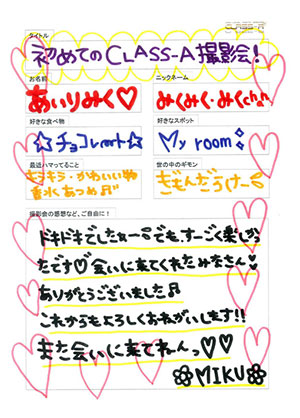 CLASS-A
タイトル
初めてのCLASS-A撮影会!
お名前
ニックネーム
あいりみく♡
みくみく・みくchan
好きな食べ物
好きなスポット
☆チョコレート☆
My room
最近ハマってること
世の中のギモン
キラキラ・かわいい物
香水あつめ♬
ぎもんだらけー
撮影会の感想など、ご自由に!
ドキドキでしたぁー でも、すーごく楽しか
ったです♡会いに来てくれたみなさん♡
ありがとうございました♬
これからもよろしくおねがいします!!
また会いに来てねーっ♡♡
MIKU